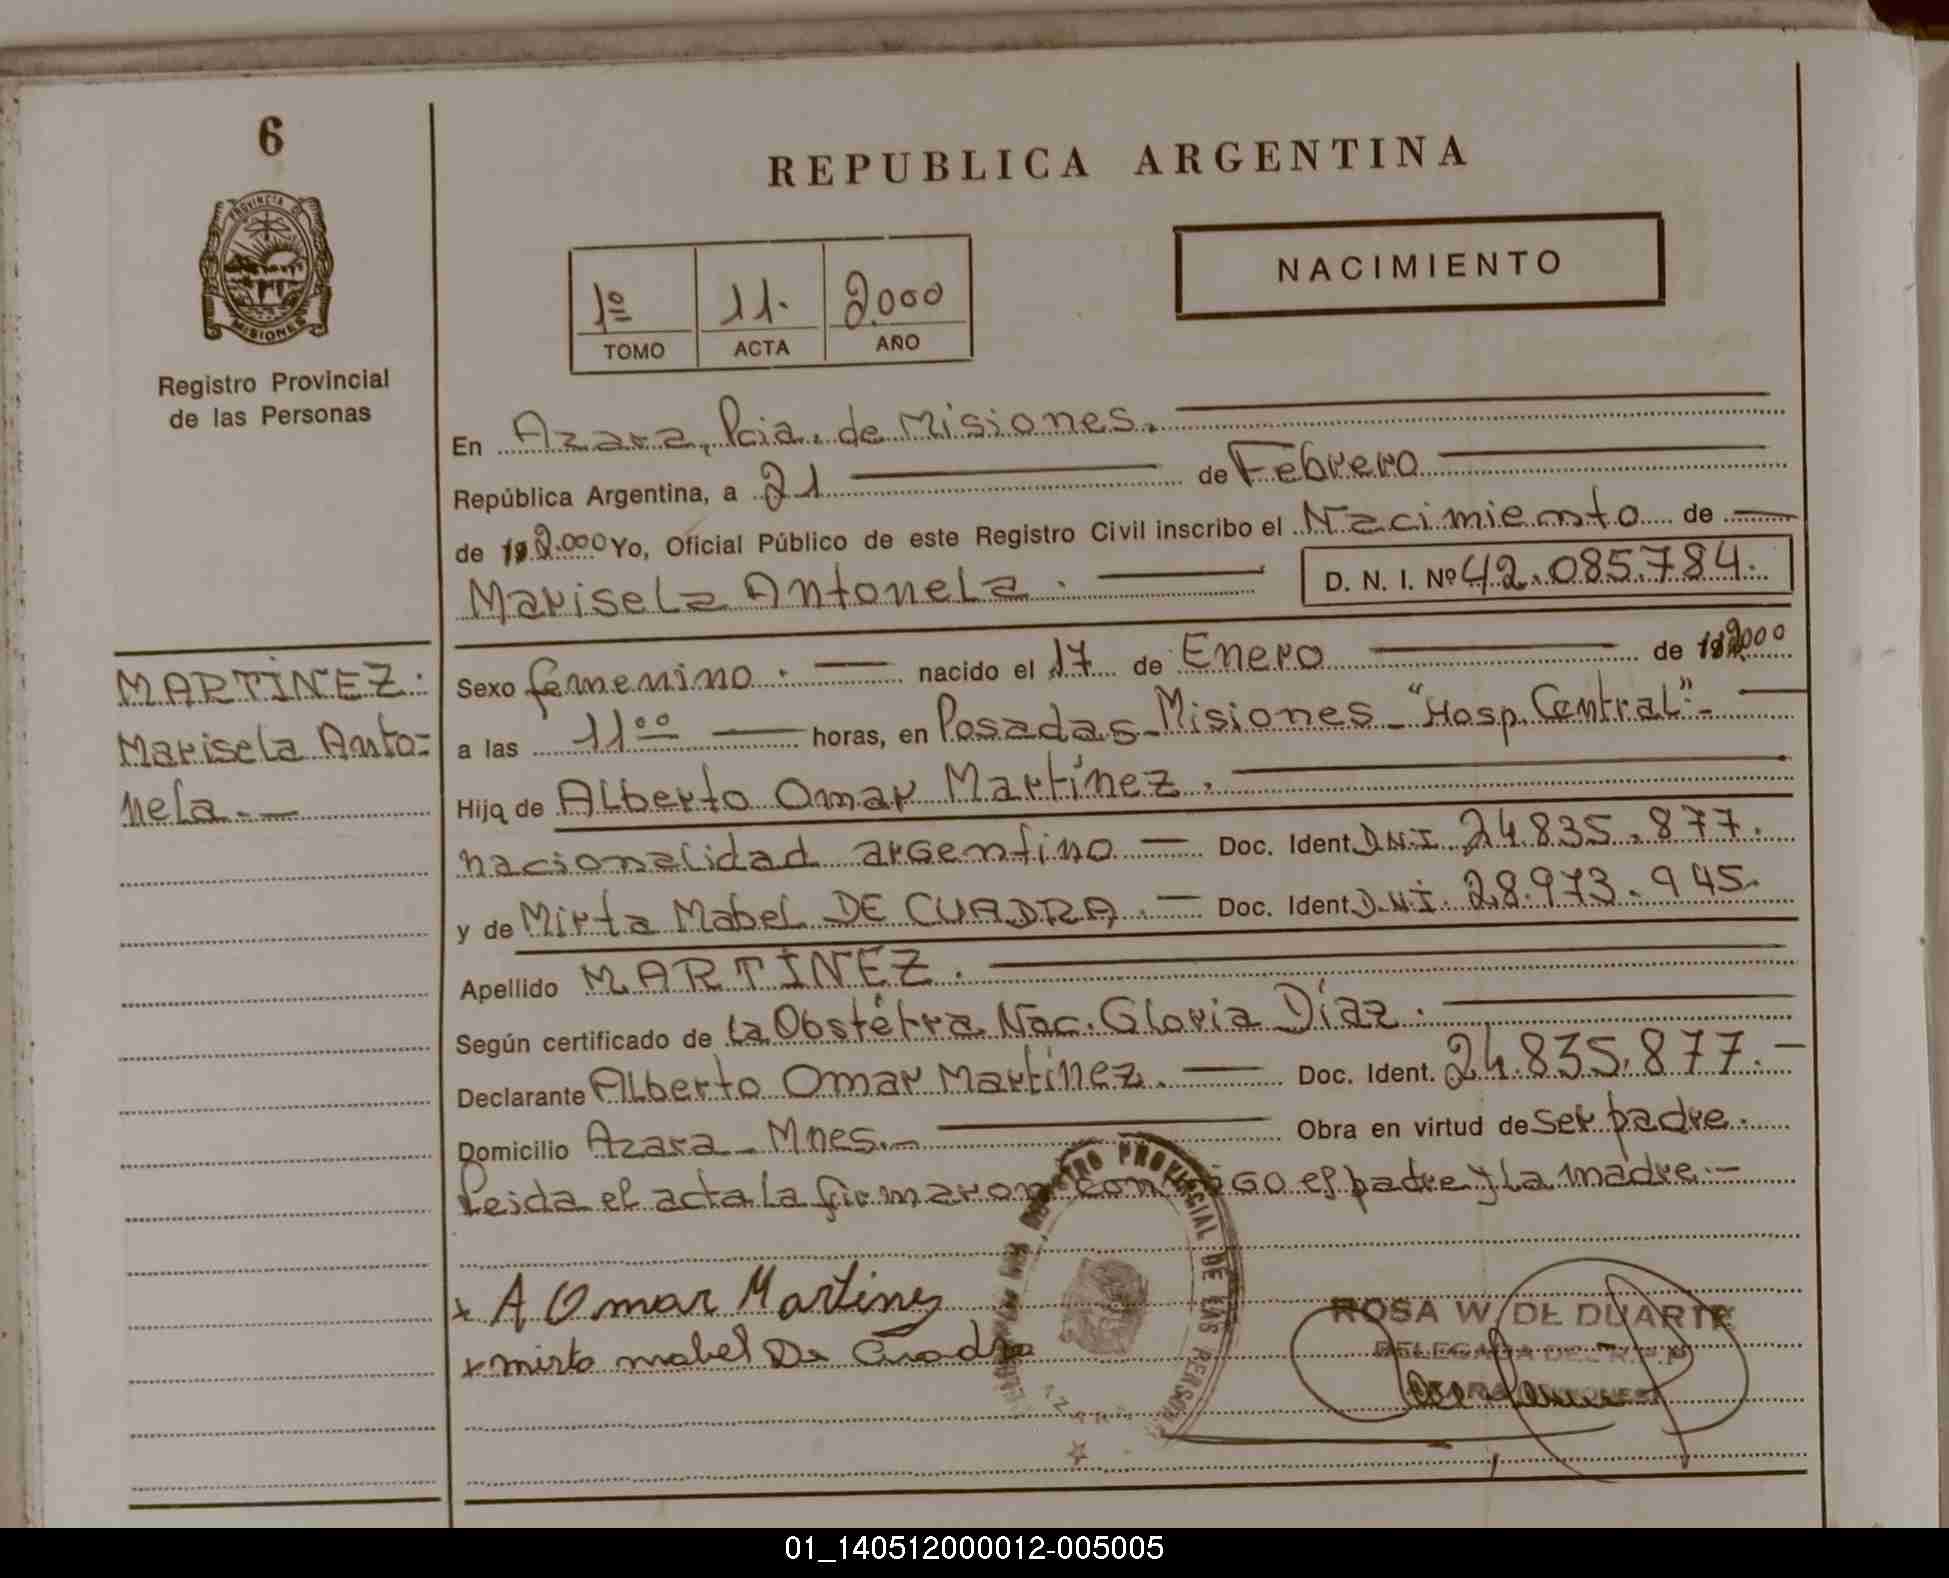 6
PROVINCIA DE
MISIONES
Registro Provincial
de las Personas
REPUBLICA ARGENTINA
NACIMIENTO
1º 11. 2.000
TOMO ACTA AÑO
En Azara, Pcia. de Misiones.
República Argentina, a 21 de Febrero
de 19 2.000 Yo, Oficial Público de este Registro Civil inscribo el Nacimiento de
Marisela Antonela. D. N. I. Nº 42.085.784.
MARTÍNEZ.
Marisela Anto=
nela.
Sexo femenino. nacido el 17 de Enero de 19 2000
a las 11 ºº horas, en Posadas - Misiones - "Hosp. Central".-
Hija de Alberto Omar Martínez.
nacionalidad argentino Doc. Ident. D.N.I. 24.835.877.
y de Mirta Mabel DE CUADRA. Doc. Ident. D.N.I. 28.973.945.
Apellido MARTÍNEZ.
Según certificado de la Obstétra Nac. Gloria Díaz.
Declarante Alberto Omar Martínez. Doc. Ident. 24.835.877.-
Domicilio Azara - Mnes.- Obra en virtud de ser padre.
Leida el acta la firmaron conmigo el padre y la madre.-
REGISTRO PROVINCIAL DE LAS PERSONAS
x A Omar Martinez
x mirta mabel De Cuadra
ROSA W. DE DUARTE
DELEGADA DEL R.P.P.
01_140512000012-005005